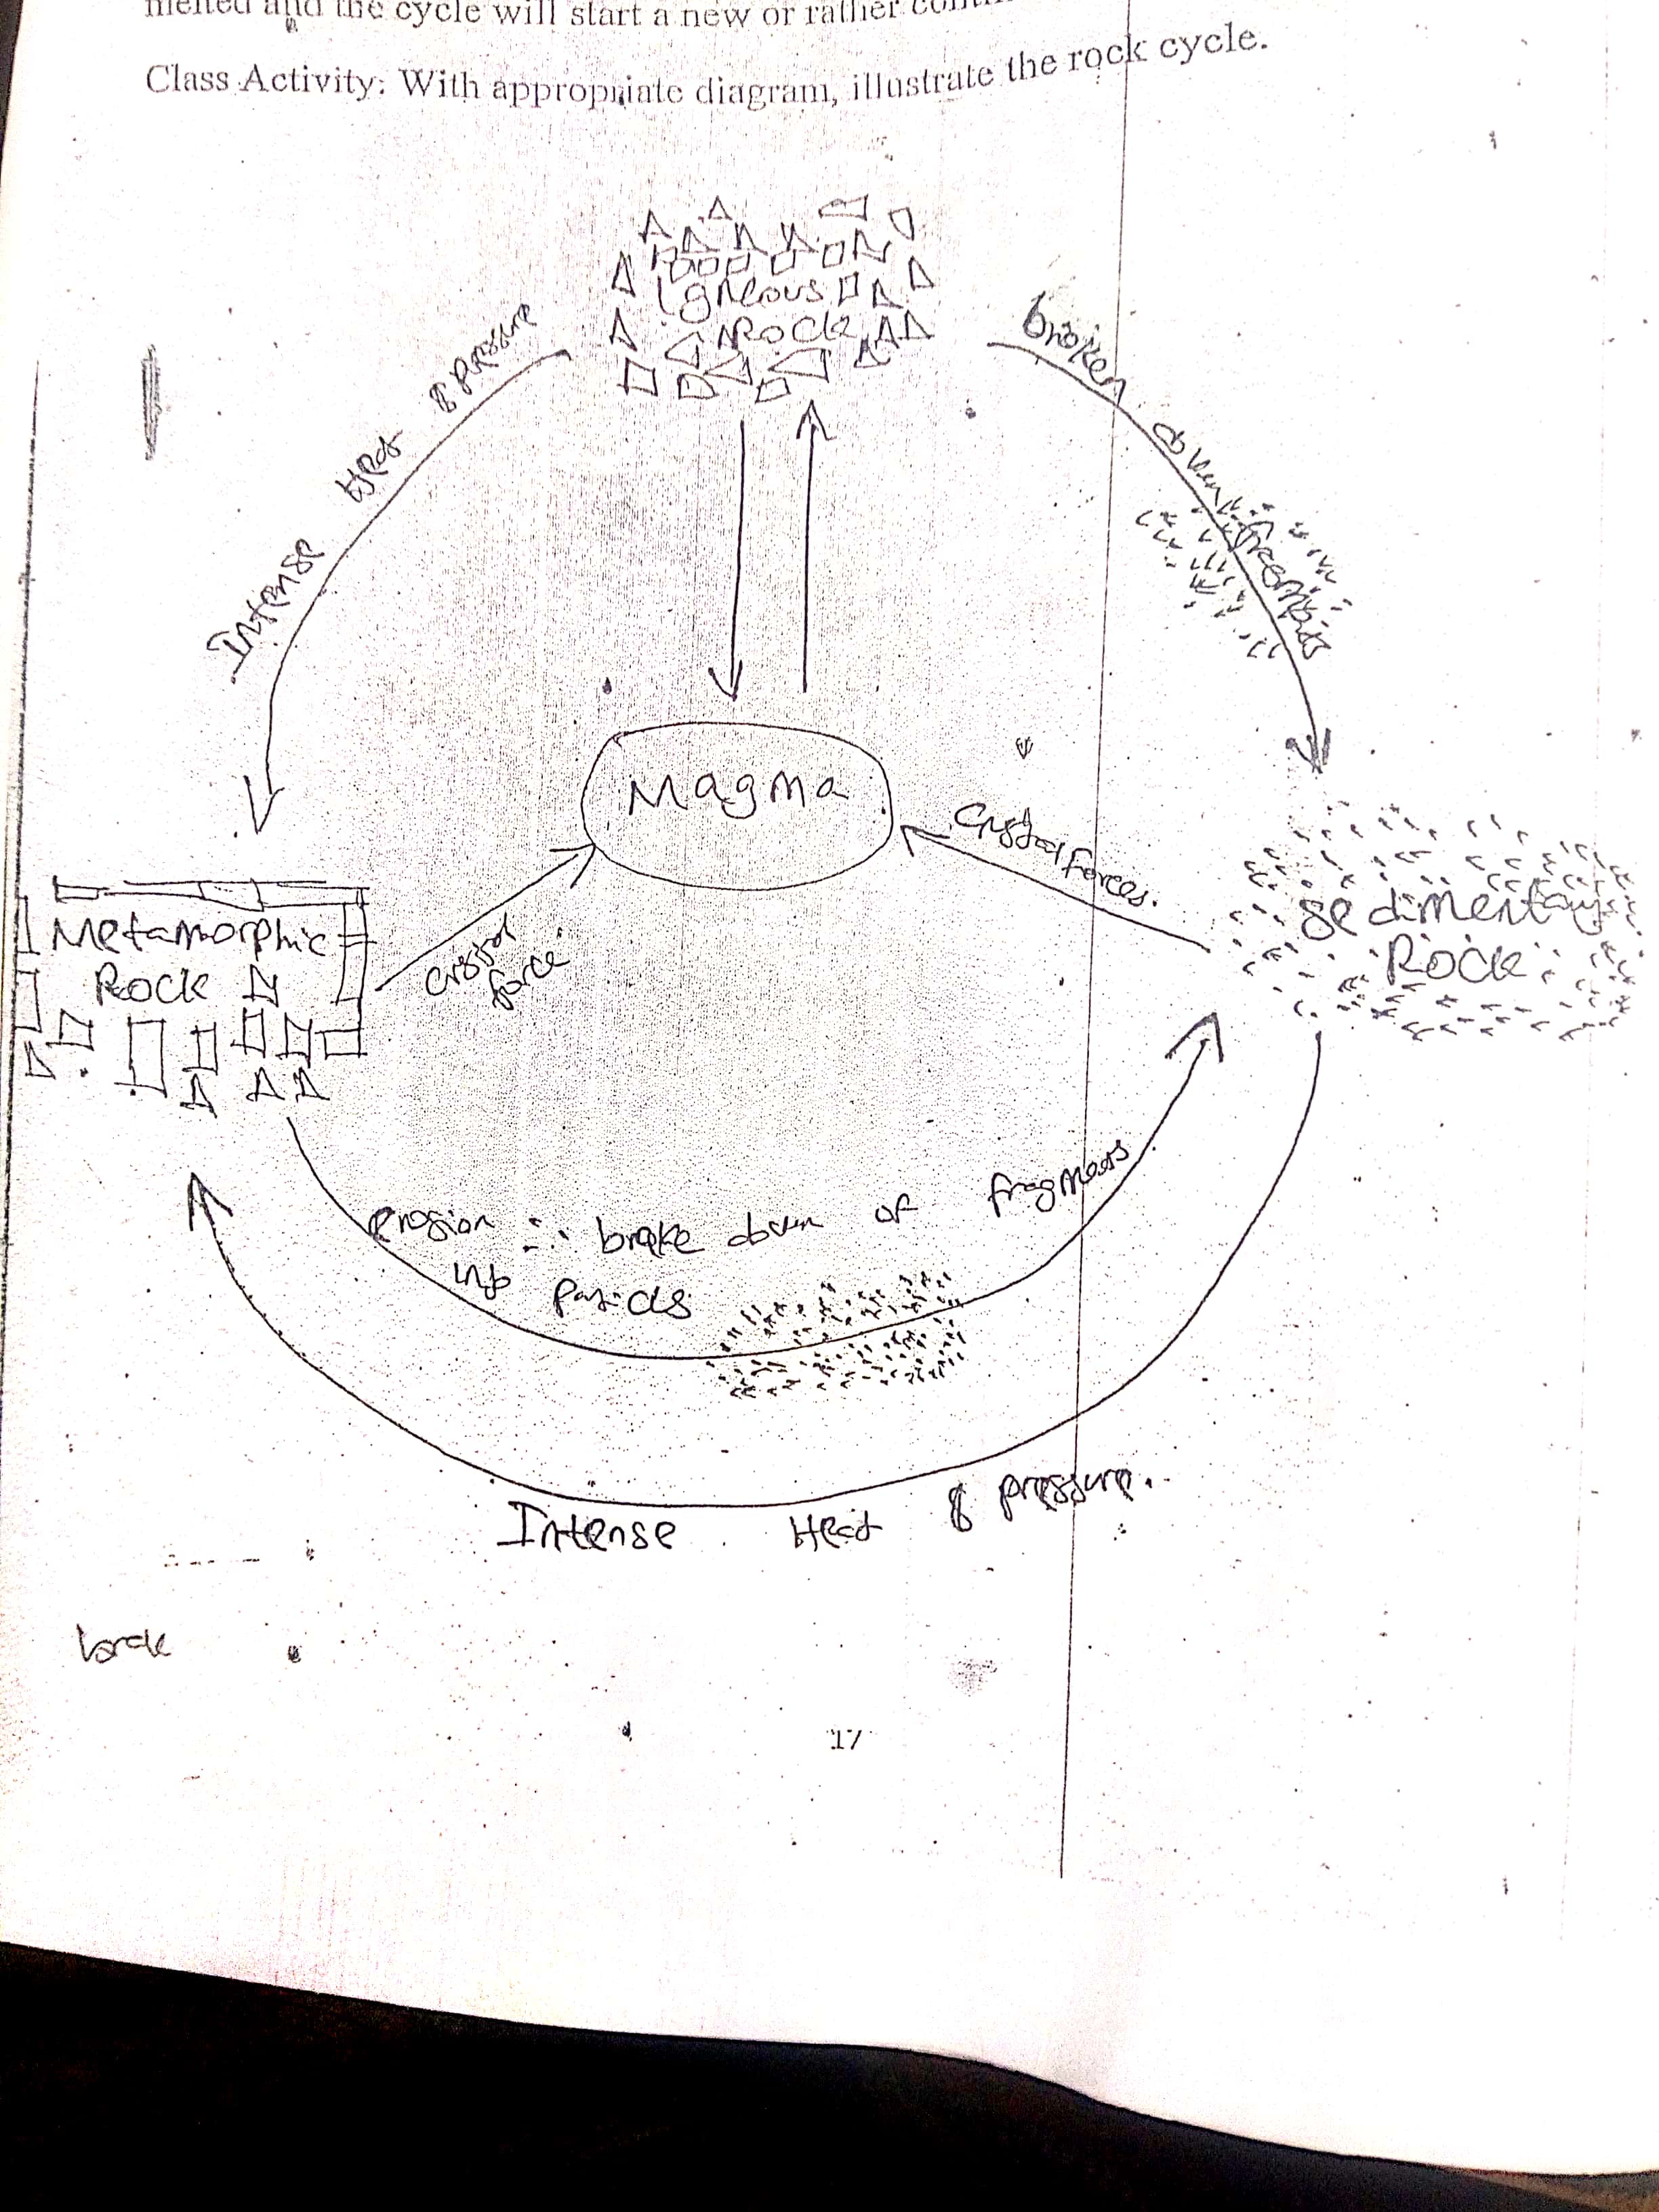 melted and the cycle will start a new or rather
Class Activity: With appropriate diagram, illustrate the rock cycle.
Igneous
Rock
Intense Heat & pressure
broken down fragments
Magma
Crustal forces.
Metamorphic
Rock
force
Sedimentary
Rock
erosion brake down of fragments
into
Intense Heat & pressure.
17